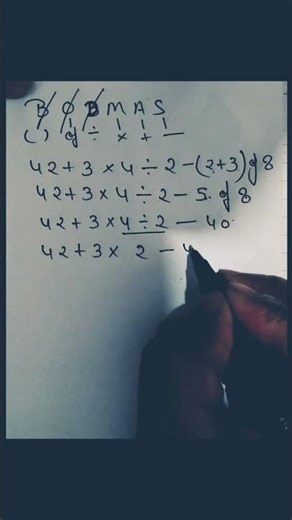 B O D M A S
( ) of ÷ × + −
42 + 3 × 4 ÷ 2 − (2+3) of 8
42 + 3 × 4 ÷ 2 − 5 of 8
42 + 3 × 4 ÷ 2 − 40
42 + 3 × 2 − 4